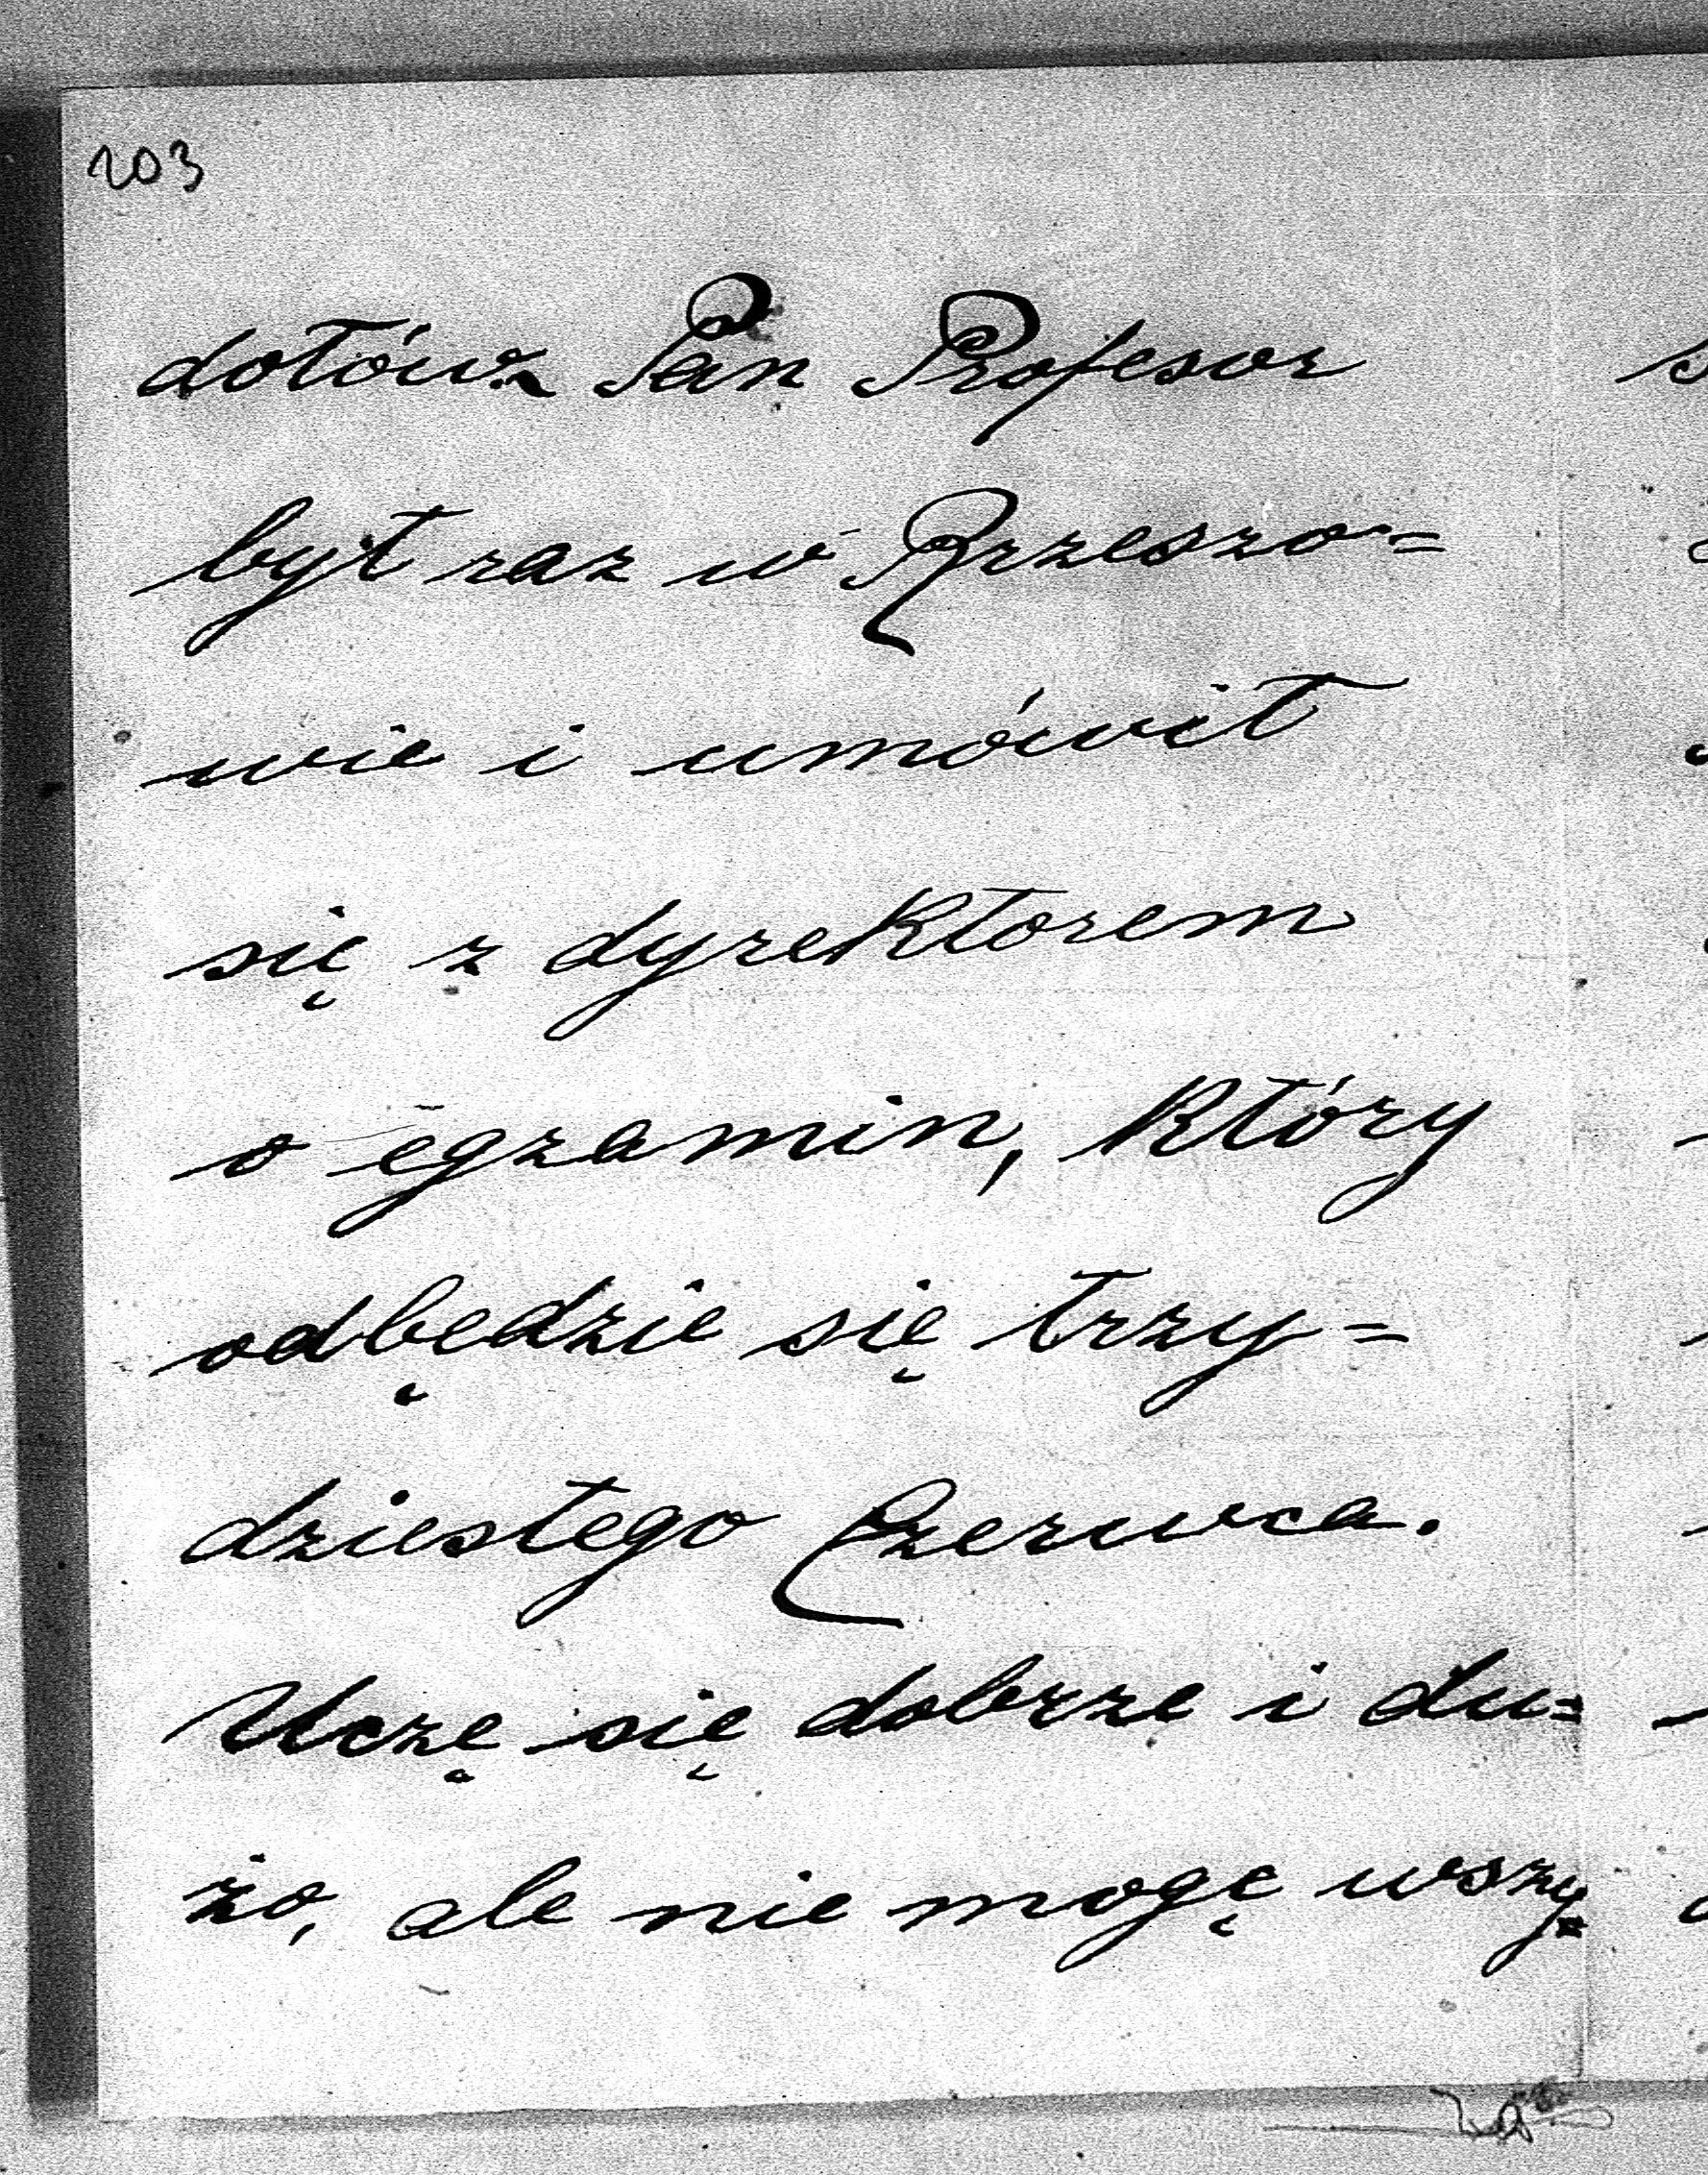 203
dotów. Pan Profesor
był raz w Rzeszo=
wie i umówił
się z dyrektorem
o egzamin, który
odbędzie się trzy=
dziestego Czerwca.
Uczę się dobrze i du=
żo, ale nie mogę wszy=